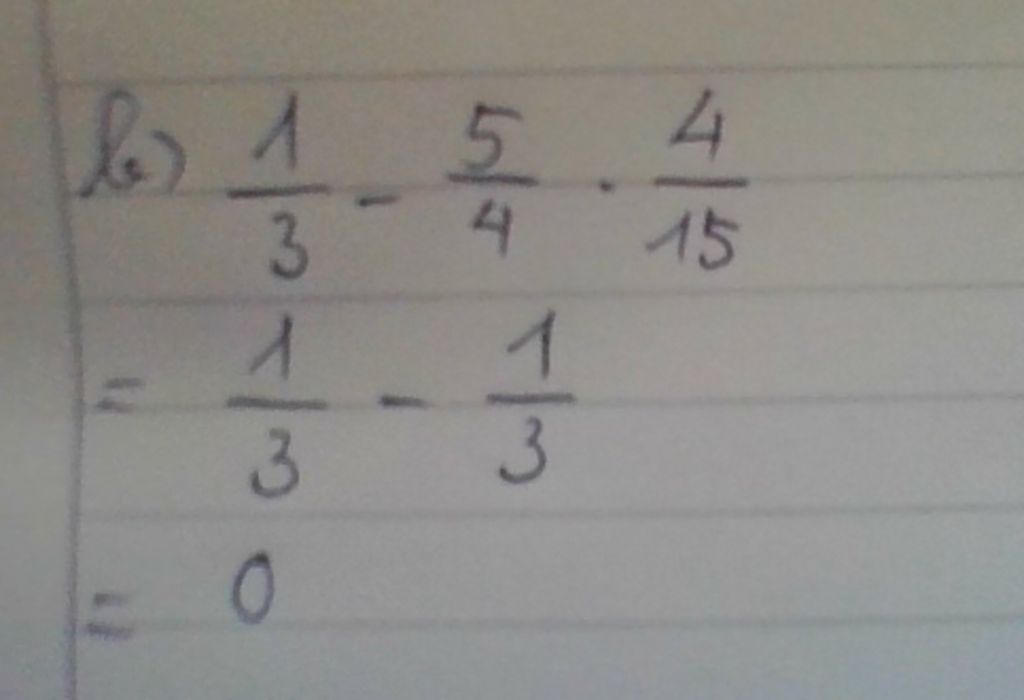 b) 1/3 - 5/4 · 4/15
= 1/3 - 1/3
= 0